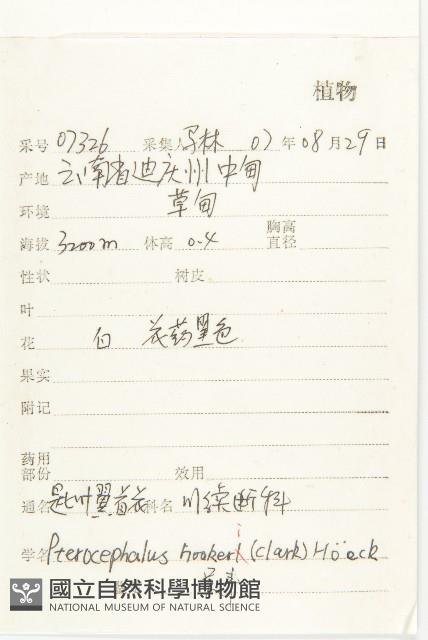 植物
采号 07326 采集人 马林 07年08月29日
产地 云南省迪庆州中甸
环境 草甸
胸高
海拔 3200m 体高 0.4 直径
性状 树皮
叶
花 白 花药黑色
果实
附记
药用
部份 效用
通名 匙叶翼首花 科名 川续断科
学名 Pterocephalus hookeri (Clark) Höeck
國立自然科學博物館
NATIONAL MUSEUM OF NATURAL SCIENCE